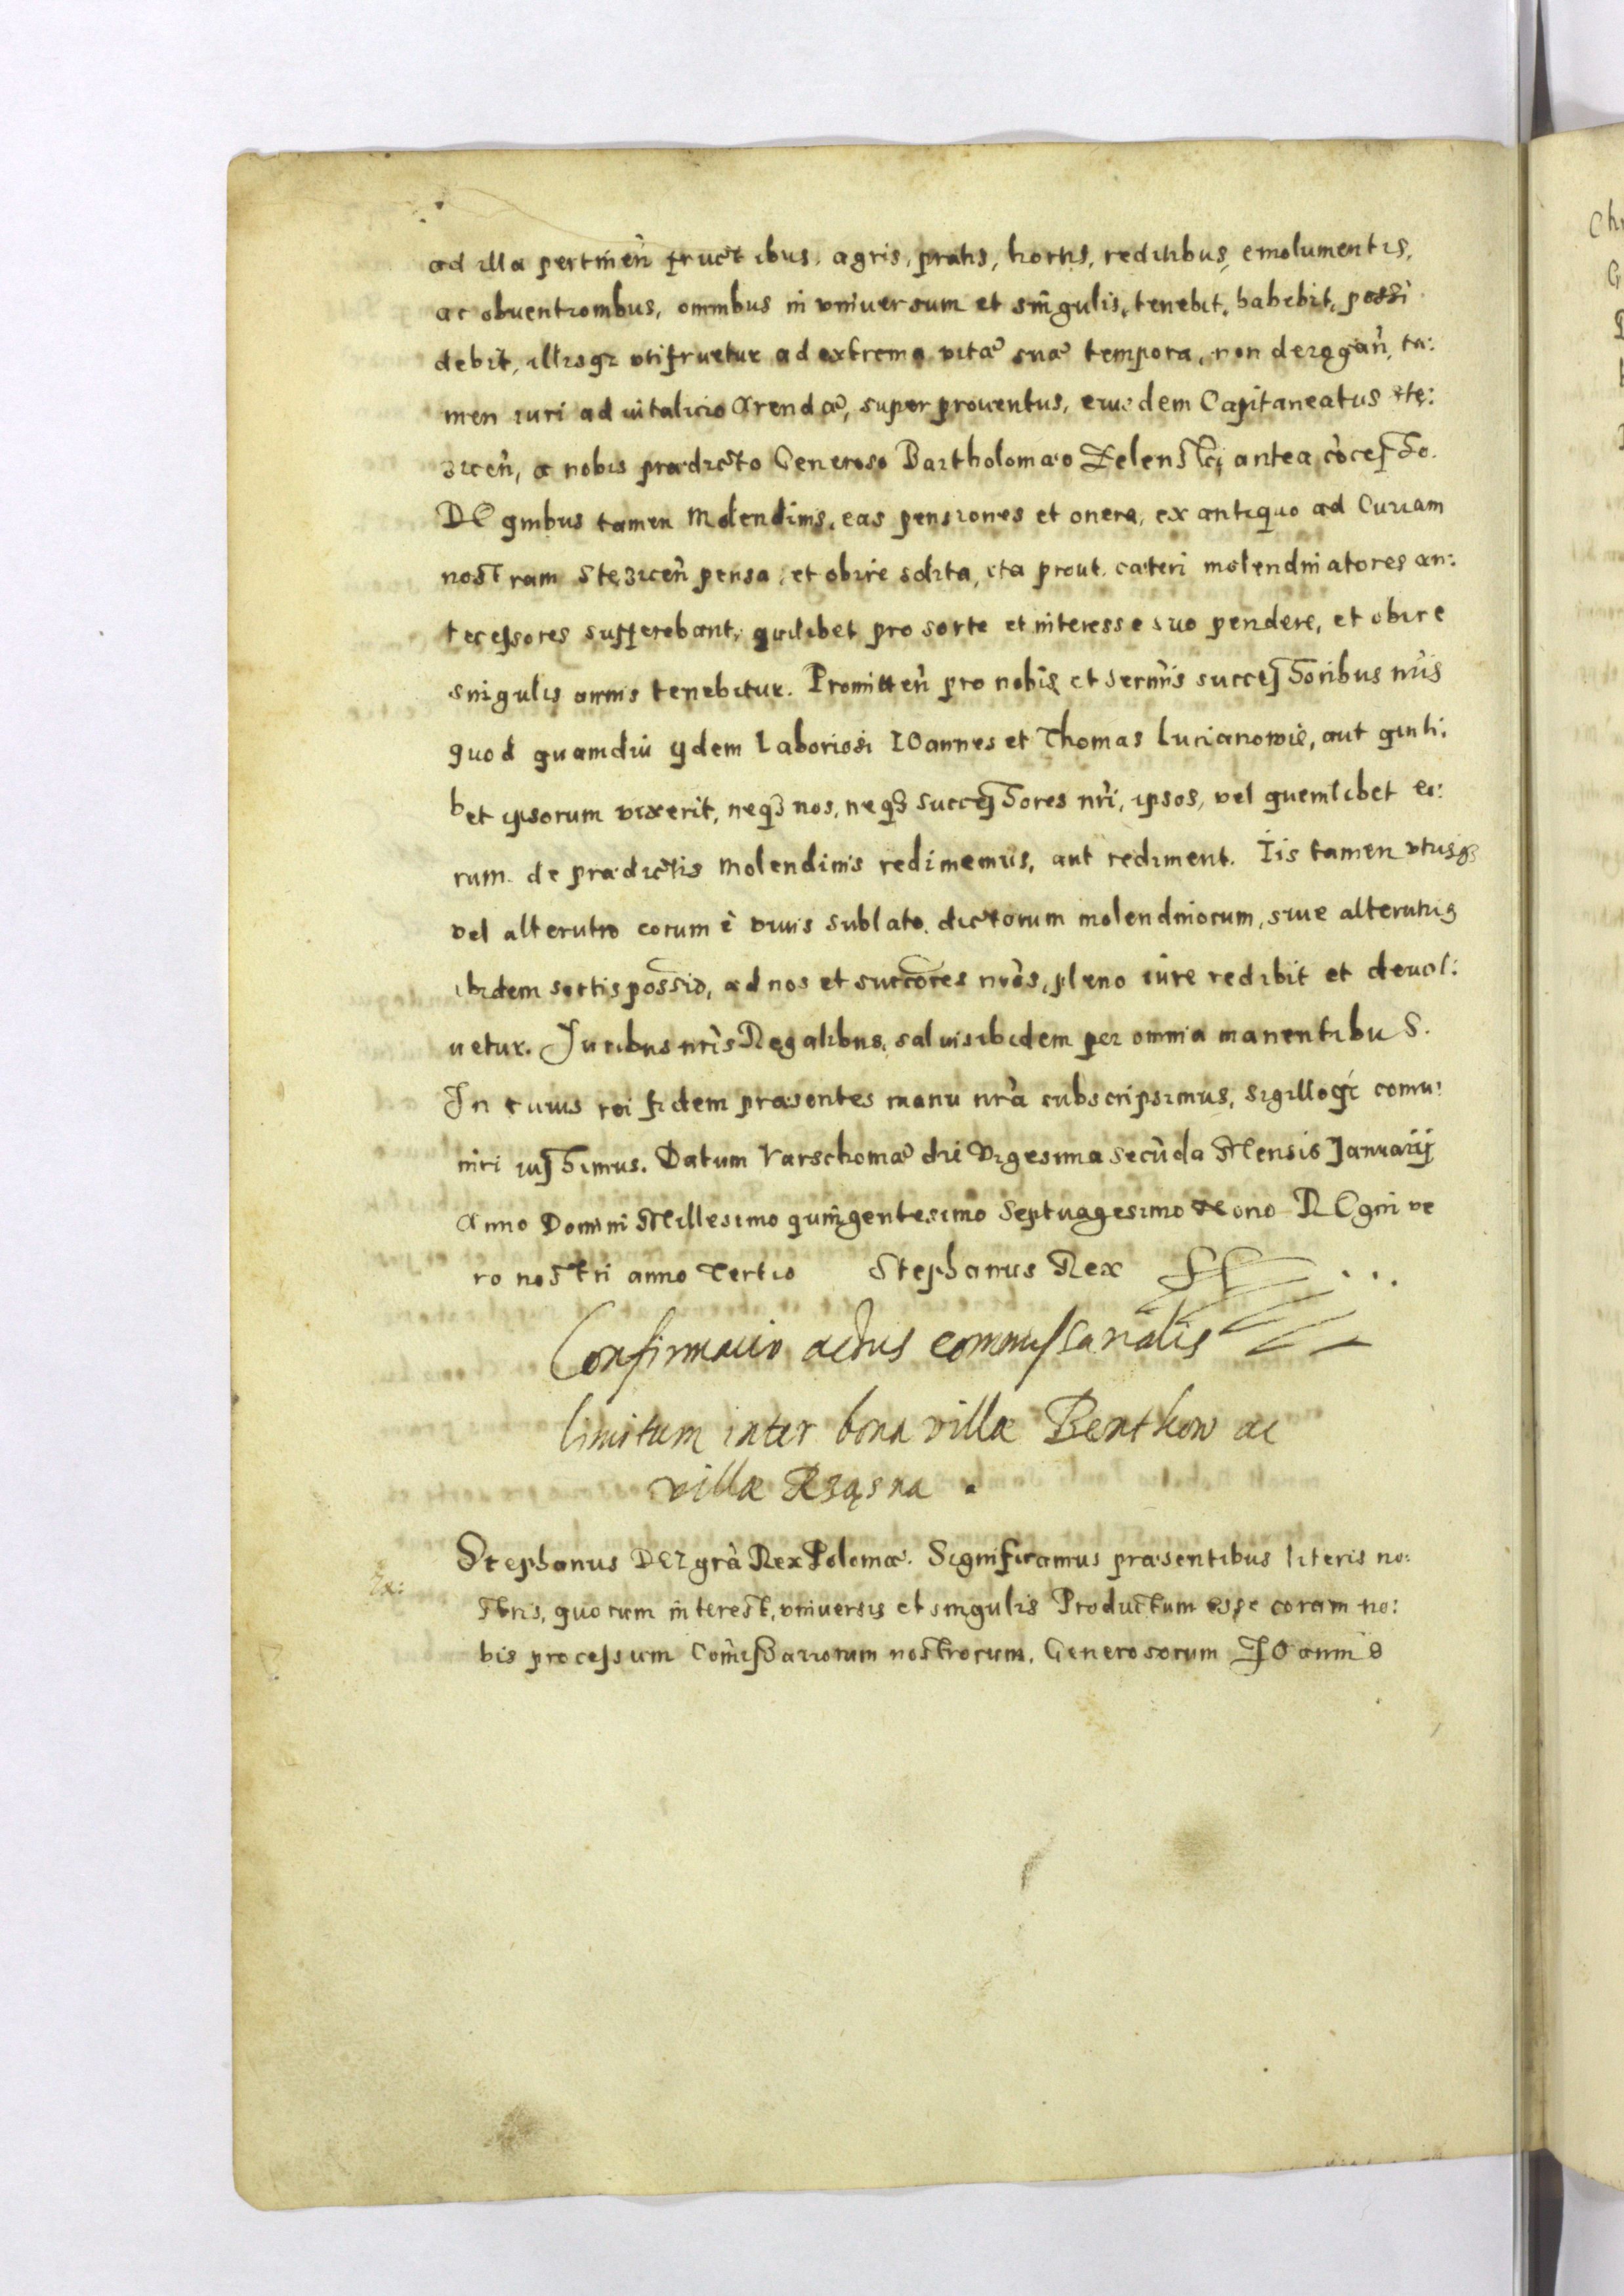 ad illa pertineñ fructibus, agris, pratis, hortis, reditibus, emolumentis,
ac obuentionibus, omnibus in vniuersum et singulis, tenebit, habebit, possi
debit, illisqꝫ vtifruetur ad extrema vitæ suæ tempora, non derogañ, ta:
men iuri aduitalicio Arendæ, super prouentus, eiusdem Capitaneatus Stę:
ziceñ, a nobis prædicto Generoso Bartholomæo Zelenski antea cocesso.
DE quibus tamen Molendinis, eas pensiones et onera, ex antiquo ad Curiam
nostram Stęziceñ pensa, et obire solita, ita prout cæteri molendinatores an:
tecessores sufferebant, quilibet pro sorte et interesse suo pendere, et obire
singulis annis tenebitur. Promitteñ pro nobis et Sermis successoribus nris
quod quamdiu ydem Laboriosi IOannes et Thomas Lucianowie, aut quili:
bet ipsorum vixerit, neqꝫ nos, neqꝫ successores nri, ipsos, vel quemlibet eo:
rum de prædictis Molendinis redimemus, aut rediment. Iis tamen vtrisqꝫ
vel alterutro eorum è viuis sublato, dictorum molendinorum, siue alterutrius
ibidem sortis possio, ad nos et succores nros, pleno iure redibit et deuol:
uetur. Iuribus nris Regalibus, saluis ibidem per omnia manentibus.
In cuius rei fidem præsentes manu nra subscripsimus, sigilloqꝫ comu:
niri iussimus. Datum Varschouiæ die Vigesima secuda Mensis Januarij
Anno Domini Millesimo quingentesimo Septuagesimo Nono REgni ve
ro nostri anno Tertio Stephanus Rex
Confirmacio actus commissarialis
limitum inter bona villæ Benthkow ac
villæ Rząsna.
Ex:
Stephanus DEI gra Rex Poloniæ. Significamus præsentibus literis no:
stris, quorum interest, vniuersis et singulis Productum esse coram no:
bis processum Comissariorum nostrorum, Generosorum IOannis